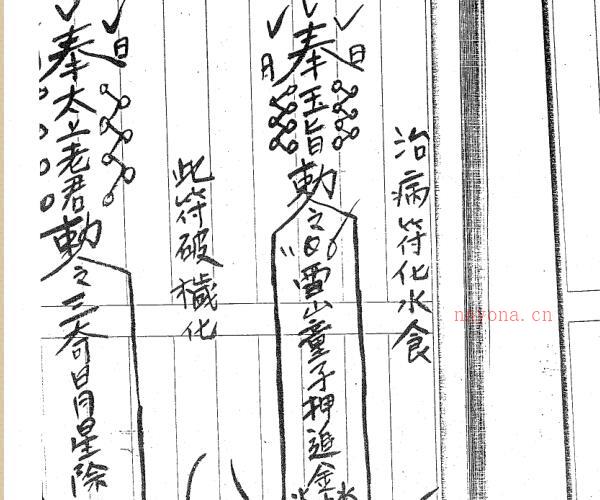 治病符化水食
日
月
奉玉旨勅之
雪山童子押追金
此符破穢化
日
奉太上老君勅之三奇日月星除
nayona.cn